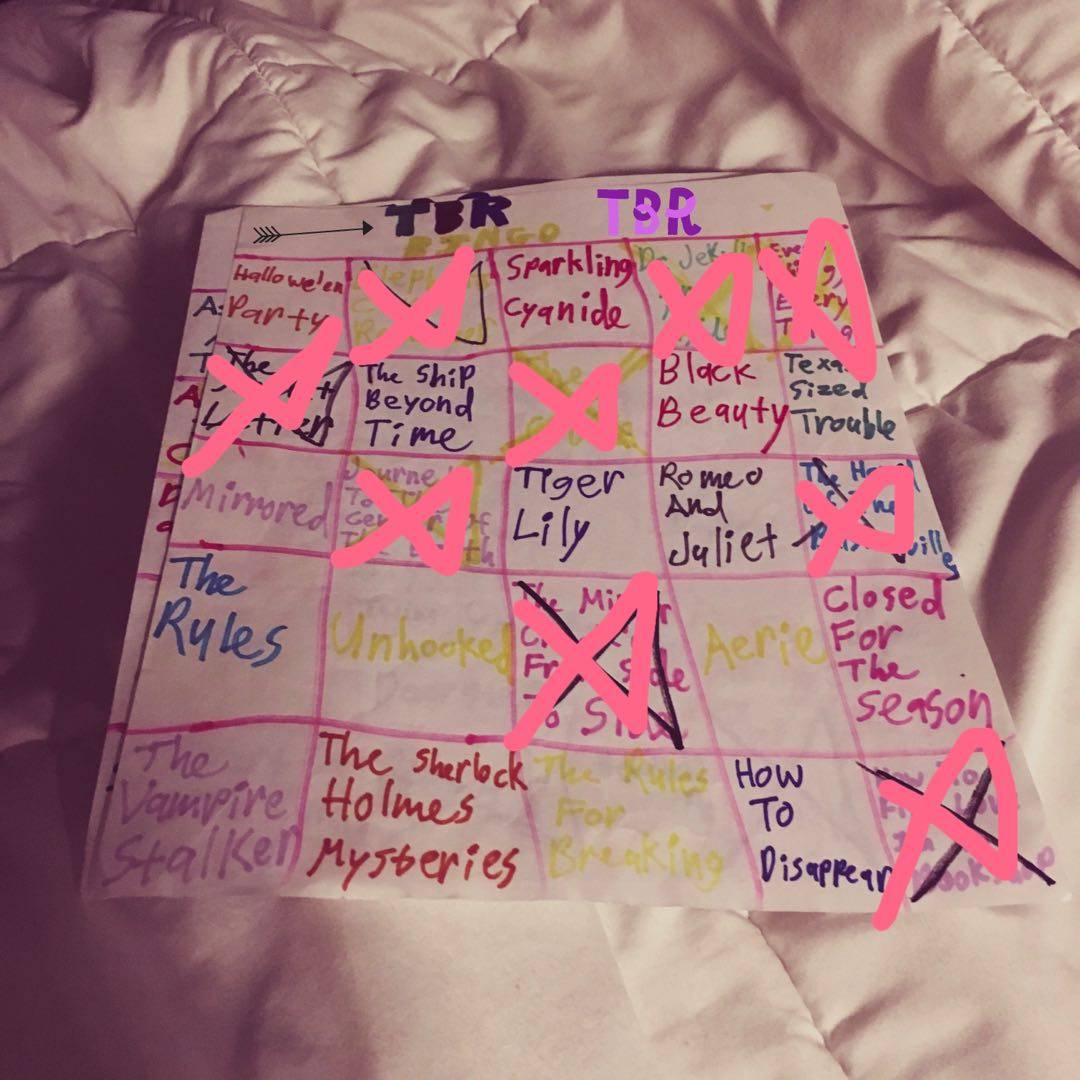 TBR TBR
BINGO
Hallowe'en
Party
Sparkling
Cyanide
Dr Jekyll
Every
The
The Ship
Beyond
Time
Black
Beauty
Texas
Sized
Trouble
Mirrored
Journey
To The
Center Of
The Earth
Tiger
Lily
Romeo
And
Juliet
The
The
Rules
Unhooked
The
From Side
To Side
Aerie
Closed
For
The
Season
The
Vampire
Stalker
The Sherlock
Holmes
Mysteries
The Rules
For
Breaking
How
To
Disappear
How To
In